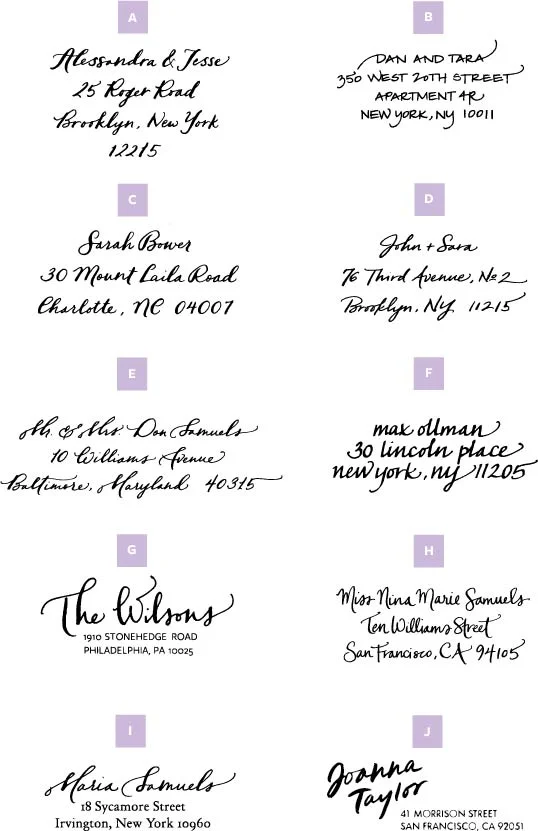 A
Alessandra & Jesse
25 Roger Road
Brooklyn, New York
12215
B
DAN AND TARA
350 WEST 20TH STREET
APARTMENT 4R
NEW YORK, NY 10011
C
Sarah Bower
30 Mount Laila Road
Charlotte, NC 04007
D
John + Sara
76 Third Avenue, No 2
Brooklyn, NY 11215
E
Mr. & Mrs. Don Samuels
10 Williams Avenue
Baltimore, Maryland 40315
F
max ollman
30 lincoln place
new york, ny 11205
G
The Wilsons
1910 STONEHEDGE ROAD
PHILADELPHIA, PA 10025
H
Miss Nina Marie Samuels
Ten Williams Street
San Francisco, CA 94105
I
Maria Samuels
18 Sycamore Street
Irvington, New York 10960
J
Joanna
Taylor
41 MORRISON STREET
SAN FRANCISCO, CA 92051